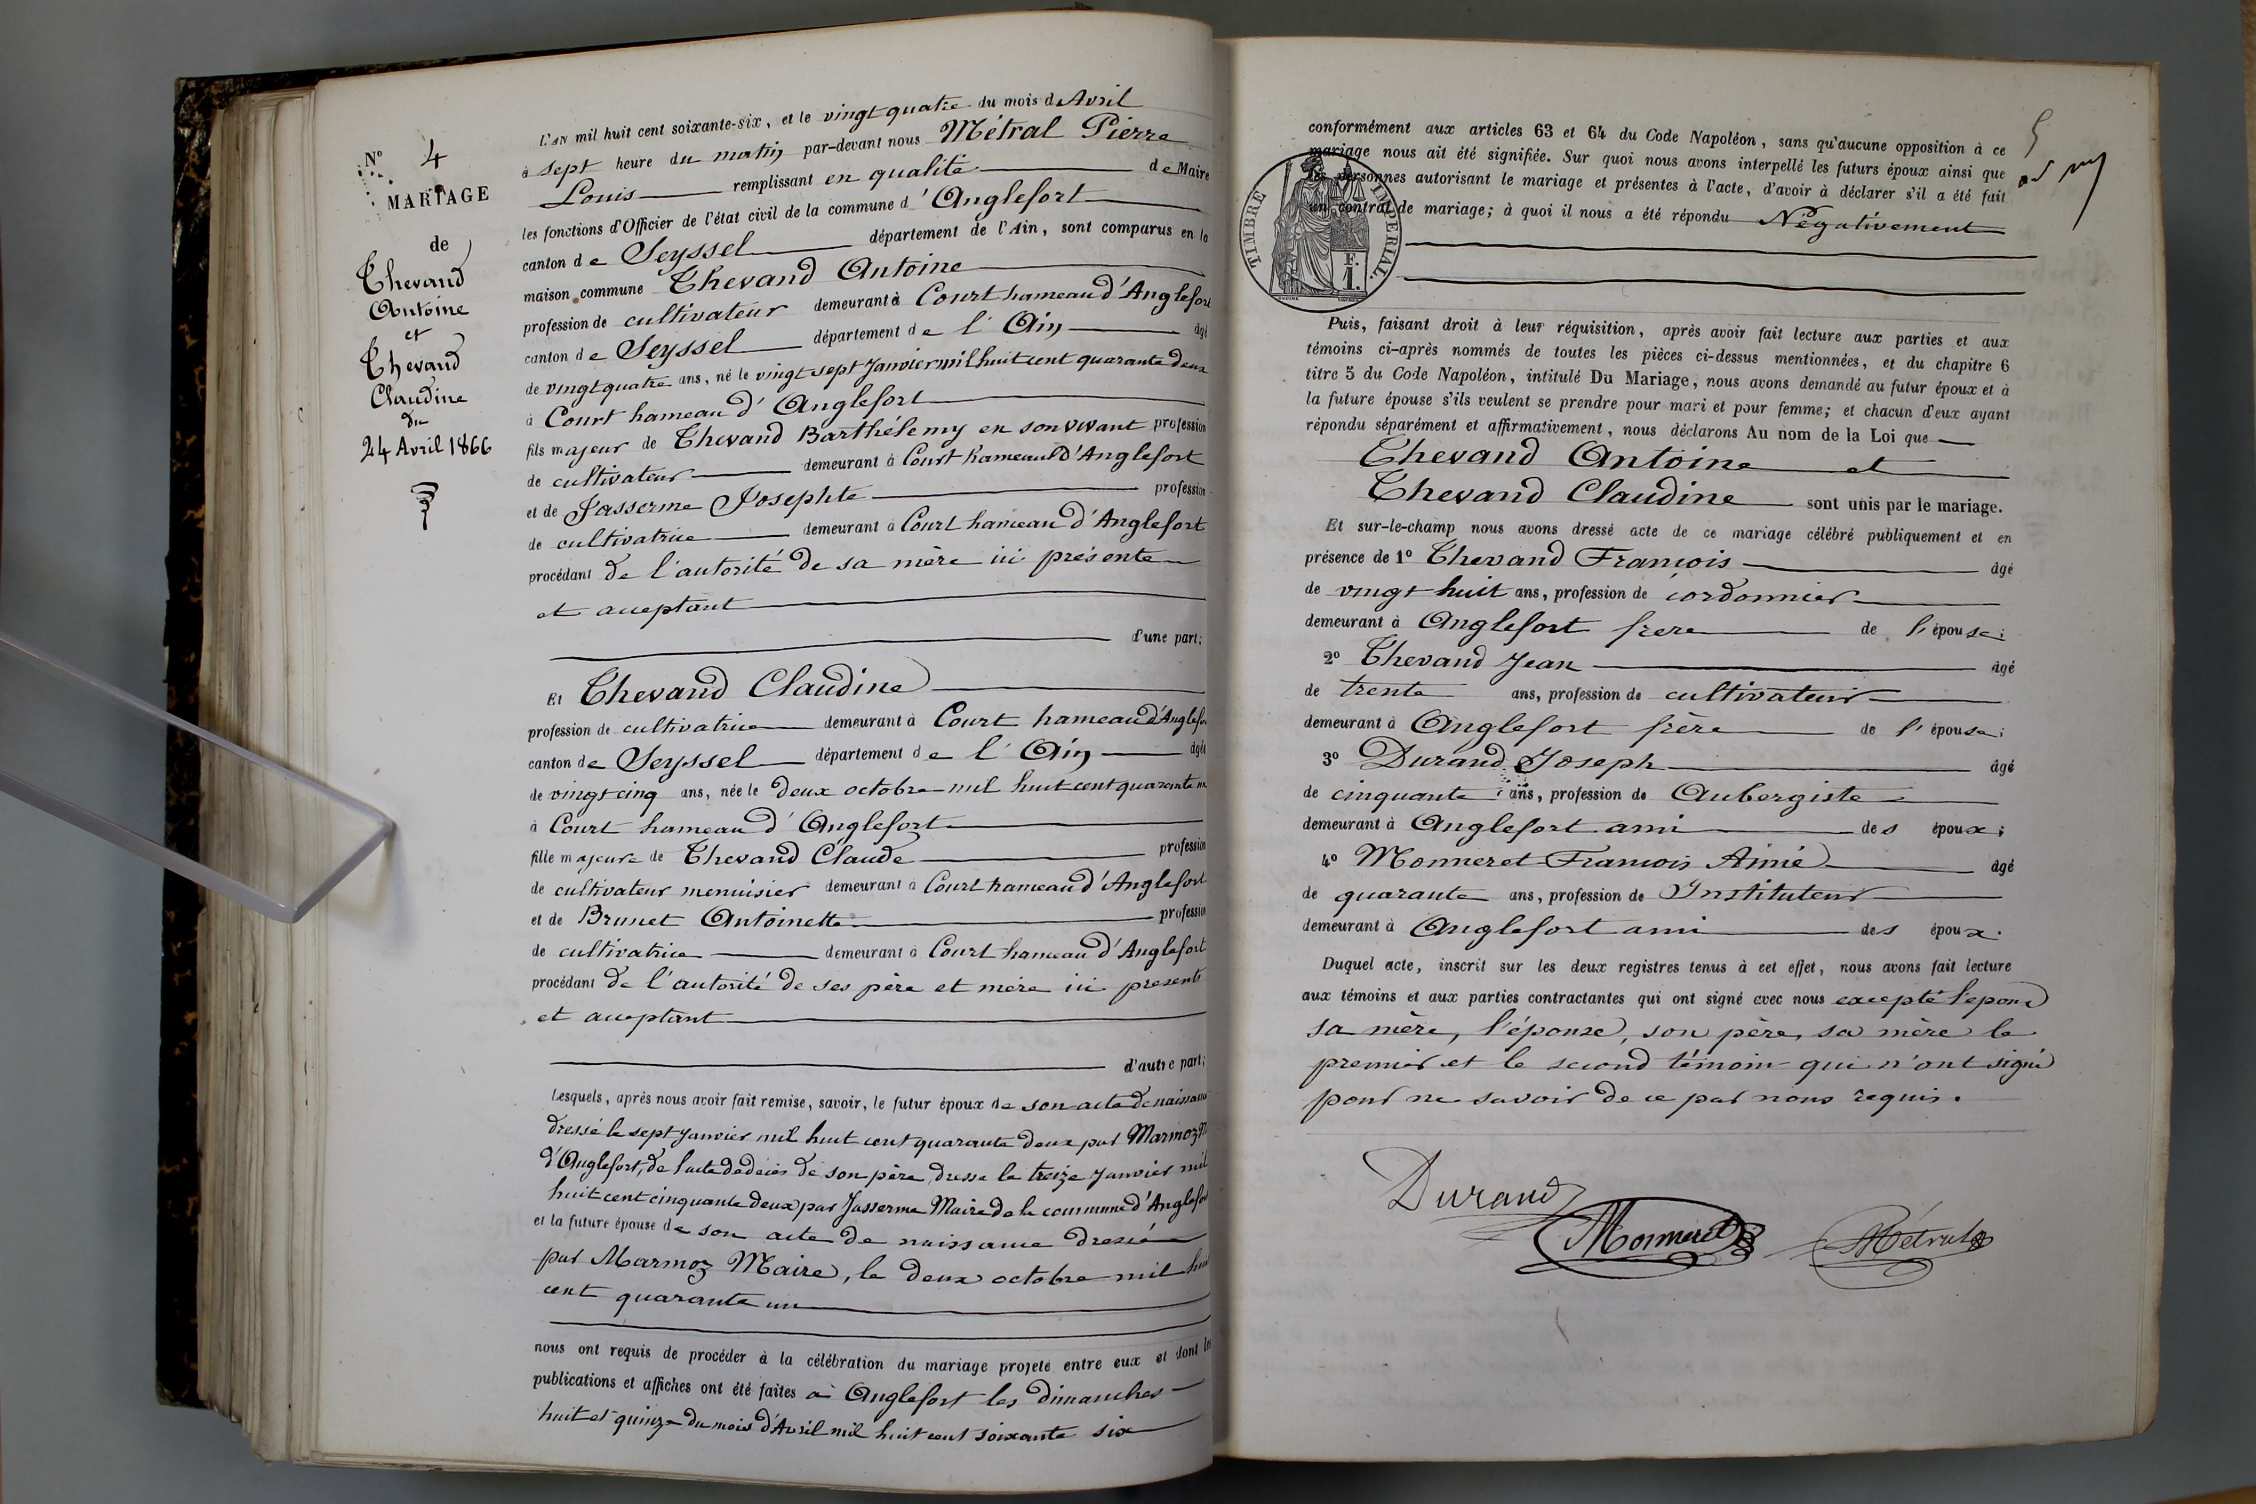 N° 4
MARIAGE
de
Thevand
Antoine
et
Thevand
Claudine
du
24 Avril 1866
L'AN mil huit cent soixante-six, et le vingt quatre du mois d Avril
à sept heure du matin par-devant nous Métral Pierre
Louis remplissant en qualité de Maire
les fonctions d'Officier de l'état civil de la commune d'Anglefort
canton de Seyssel département de l'Ain, sont comparus en la
maison commune Thevand Antoine
profession de cultivateur demeurant à Court hameau d'Anglefort
canton de Seyssel département de l'Ain âgé
de vingt quatre ans, né le vingt sept Janvier mil huit cent quarante deux
à Court hameau d'Anglefort
fils majeur de Thevand Barthélemy en son vivant profession
de cultivateur demeurant à Court hameau d'Anglefort
et de Jasserme Josephte profession
de cultivatrice demeurant à Court hameau d'Anglefort
procédant de l'autorité de sa mère ici présente
et acceptant
d'une part;
Et Thevand Claudine
profession de cultivatrice demeurant à Court hameau d'Anglefo
canton de Seyssel département de l'Ain âgée
de vingt cinq ans, née le deux octobre mil huit cent quarante un
à Court hameau d'Anglefort
fille majeure de Thevand Claude profession
de cultivateur menuisier demeurant à Court hameau d'Anglefort
et de Brunet Antoinette profession
de cultivatrice demeurant à Court hameau d'Anglefort
procédant de l'autorité de ses père et mère ici presents
et acceptant
d'autre part;
Lesquels, après nous avoir fait remise, savoir, le futur époux de son acte de naissance
dressé le sept Janvier mil huit cent quarante deux par Marmoz
d'Anglefort, de l'acte de décès de son père dressé le treize Janvier mil
huit cent cinquante deux par Jasserme Maire de la commune d'Anglefort
et la future épouse de son acte de naissance dressé
par Marmoz Maire, le deux octobre mil huit
cent quarante un
nous ont requis de procéder à la célébration du mariage projeté entre eux et dont les
publications et affiches ont été faites à Anglefort les dimanches
huit et quinze du mois d'Avril mil huit cent soixante six
conformément aux articles 63 et 64 du Code Napoléon, sans qu'aucune opposition à ce
mariage nous ait été signifiée. Sur quoi nous avons interpellé les futurs époux ainsi que
les personnes autorisant le mariage et présentes à l'acte, d'avoir à déclarer s'il a été fait
un contrat de mariage; à quoi il nous a été répondu Négativement
TIMBRE IMPÉRIAL.
F.
1.
Puis, faisant droit à leur réquisition, après avoir fait lecture aux parties et aux
témoins ci-après nommés de toutes les pièces ci-dessus mentionnées, et du chapitre 6
titre 5 du Code Napoléon, intitulé Du Mariage, nous avons demandé au futur époux et à
la future épouse s'ils veulent se prendre pour mari et pour femme; et chacun d'eux ayant
répondu séparément et affirmativement, nous déclarons Au nom de la Loi que
Thevand Antoine et
Thevand Claudine sont unis par le mariage.
Et sur-le-champ nous avons dressé acte de ce mariage célébré publiquement et en
présence de 1° Thevand François âgé
de vingt huit ans, profession de cordonnier
demeurant à Anglefort frere de l'épouse;
2° Thevand Jean âgé
de trente ans, profession de cultivateur
demeurant à Anglefort frère de l'épouse;
3° Durand Joseph âgé
de cinquante ans, profession de Aubergiste
demeurant à Anglefort ami des époux;
4° Monneret François Aimé âgé
de quarante ans, profession de Instituteur
demeurant à Anglefort ami des époux.
Duquel acte, inscrit sur les deux registres tenus à cet effet, nous avons fait lecture
aux témoins et aux parties contractantes qui ont signé avec nous excepté l'epoux
sa mère, l'épouse, son père, sa mère le
premier et le second témoin qui n'ont signé
pour ne savoir de ce par nous requis.
Durand
Monneret
Métral